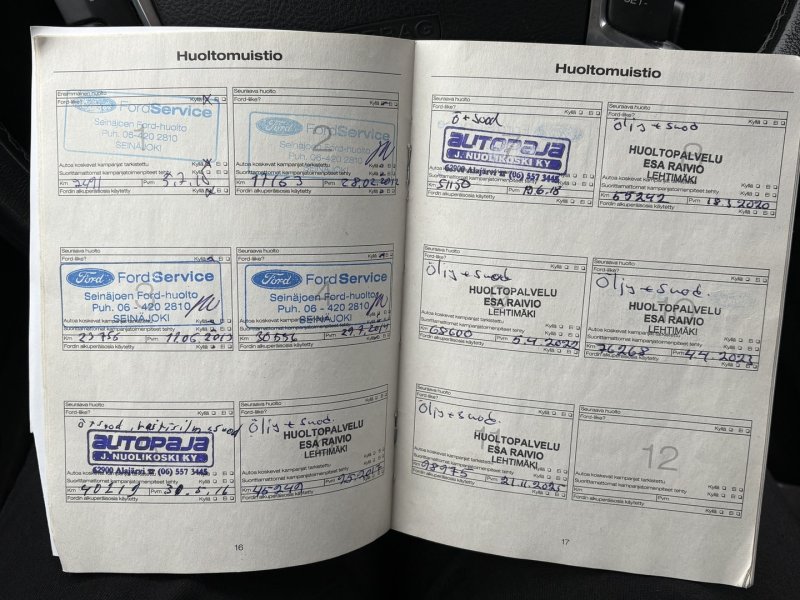 Huoltomuistio
Ensimmäinen huolto
Ford-liike? Kyllä
Ford Service
Seinäjoen Ford-huolto
Puh. 06-420 2810
SEINÄJOKI
Autoa koskevat kampanjat tarkastettu
Suorittamattomat kampanjatoimenpiteet tehty
Km Pvm
Fordin alkuperäisosia käytetty
Seuraava huolto
Ford-liike? Kyllä
Ford
Ford Service
2
Seinäjoen Ford-huolto
Puh. 06-420 2810
SEINÄJOKI
Autoa koskevat kampanjat tarkastettu
Suorittamattomat kampanjatoimenpiteet tehty
Km 17163 Pvm 28.02.2012
Fordin alkuperäisosia käytetty Kyllä
Seuraava huolto
Ford-liike? Kyllä
Ford
Ford Service
Seinäjoen Ford-huolto
Puh. 06 - 420 2810
SEINÄJOKI
Suorittamattomat kampanjatoimenpiteet tehty
Km 23756 Pvm 11.06.2013
Fordin alkuperäisosia käytetty Kyllä
Seuraava huolto
Ford-liike? Kyllä
Ford
Ford Service
Seinäjoen Ford-huolto
Puh. 06 - 420 2810
SEINÄJOKI
Suorittamattomat kampanjatoimenpiteet tehty
Km 30556 Pvm
Fordin alkuperäisosia käytetty Kyllä
Seuraava huolto
Ford-liike? Kyllä
autopaja
J. NUOLIKOSKI KY
62900 Alajärvi (06) 557 3445
Autoa koskevat kampanjat tarkastettu
Suorittamattomat kampanjatoimenpiteet tehty
Km 40219 Pvm 30.5.16
Fordin alkuperäisosia käytetty Kyllä
Seuraava huolto
Ford-liike? Kyllä
Öljy + suod.
HUOLTOPALVELU
ESA RAIVIO
LEHTIMÄKI
Autoa koskevat kampanjat tarkastettu
Suorittamattomat kampanjatoimenpiteet tehty
Km 45249 Pvm
Fordin alkuperäisosia käytetty Kyllä
16
Huoltomuistio
Seuraava huolto
Ford-liike? Kyllä Ei
Ö + suod
autopaja
J. NUOLIKOSKI KY
62900 Alajärvi (06) 557 3445
Suorittamattomat kampanjatoimenpiteet tehty
Km 51150 Pvm 19.6.18
Fordin alkuperäisosia käytetty Kyllä Ei
Seuraava huolto
Ford-liike? Kyllä Ei
Öljy + suod
HUOLTOPALVELU
ESA RAIVIO
LEHTIMÄKI
Suorittamattomat kampanjatoimenpiteet tehty
Km Pvm 18.3.2020
Fordin alkuperäisosia käytetty Kyllä Ei
Seuraava huolto
Ford-liike?
Öljy + suod
HUOLTOPALVELU
ESA RAIVIO
LEHTIMÄKI
Autoa koskevat kampanjat tarkastettu
Suorittamattomat kampanjatoimenpiteet tehty
Km 65600 Pvm 5.4.2022
Fordin alkuperäisosia käytetty Kyllä Ei
Seuraava huolto
Ford-liike? Kyllä Ei
Öljy + suod.
HUOLTOPALVELU
ESA RAIVIO
LEHTIMÄKI
Autoa koskevat kampanjat tarkastettu
Suorittamattomat kampanjatoimenpiteet tehty
Km 76268 Pvm 4.4.2023
Fordin alkuperäisosia käytetty Kyllä Ei
Seuraava huolto
Ford-liike? Kyllä Ei
Öljy + suod.
HUOLTOPALVELU
ESA RAIVIO
LEHTIMÄKI
Autoa koskevat kampanjat tarkastettu
Suorittamattomat kampanjatoimenpiteet tehty
Km 98975 Pvm 21.11.2025
Fordin alkuperäisosia käytetty Kyllä Ei
Seuraava huolto
Ford-liike? Kyllä Ei
12
Autoa koskevat kampanjat tarkastettu Kyllä Ei
Suorittamattomat kampanjatoimenpiteet tehty Kyllä Ei
Km Pvm
Fordin alkuperäisosia käytetty Kyllä Ei
17